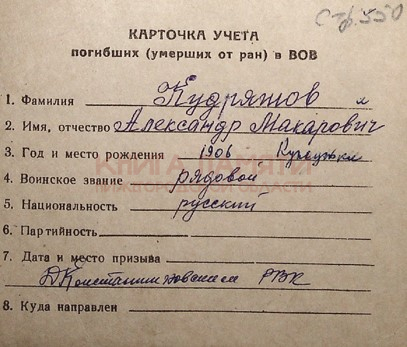 Стр. 550
КАРТОЧКА УЧЕТА
погибших (умерших от ран) в ВОВ
1. Фамилия Кудряшов
2. Имя, отчество Александр Макарович
3. Год и место рождения 1906
КНИГА ПАМЯТИ
4. Воинское звание рядовой
НИЖЕГОРОДСКОЙ ОБЛАСТИ
5. Национальность русский
6. Партийность
7. Дата и место призыва
РВК
8. Куда направлен